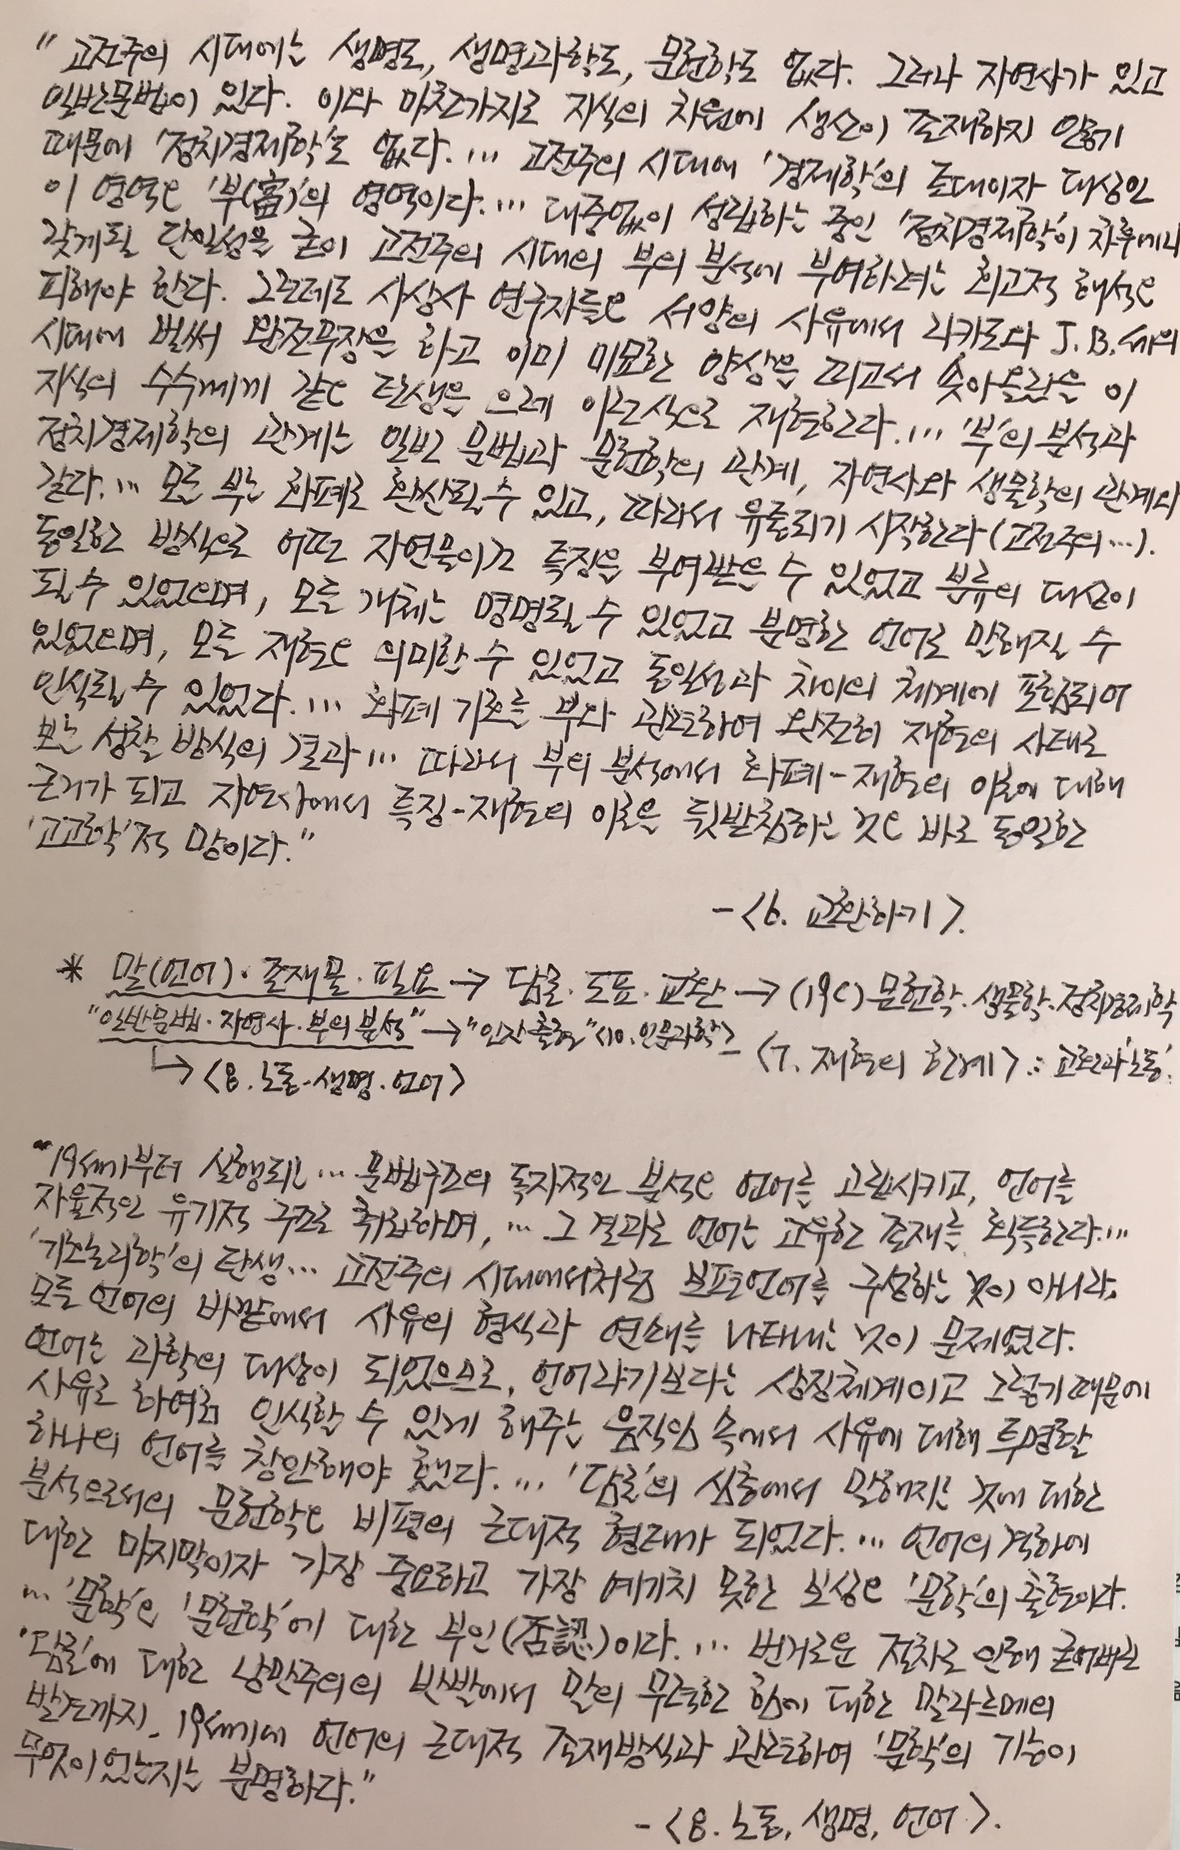 " 고전주의 시대에는 생명도, 생명과학도, 문헌학도 없다. 그러나 자연사가 있고
일반문법이 있다. 이와 마찬가지로 지식의 차원에 생산이 존재하지 않기
때문에 '정치경제학'도 없다.… 고전주의 시대에 '경제학'의 토대이자 대상인
이 영역은 '부(富)'의 영역이다.… 대중없이 성립하는 중인 '정치경제학'이 차후에나
갖게될 단일성을 굳이 고전주의 시대의 부의 분석에 부여하려는 회고적 해석은
피해야 한다. 그런데도 사상사 연구자들은 서양의 사유에서 리카도와 J.B.세의
시대에 벌써 완전무장을 하고 이미 미묘한 양상을 띠고서 솟아올랐을 이
지식의 수수께끼 같은 탄생을 으레 이런식으로 재현한다.… '부'의 분석과
정치경제학의 관계는 일반 문법과 문헌학의 관계, 자연사와 생물학의 관계와
같다.… 모든 부는 화폐로 환산될 수 있고, 따라서 유통되기 시작한다(고전주의…).
동일한 방식으로 어떤 자연물이건 특징을 부여받을 수 있었고 분류의 대상이
될 수 있었으며, 모든 개체는 명명될 수 있었고 분명한 언어로 말해질 수
있었으며, 모든 재현은 의미할 수 있었고 동일성과 차이의 체계에 포함되어
인식될 수 있었다.… 화폐 기호를 부와 관련하여 완전히 재현의 사태로
보는 성찰 방식의 결과… 따라서 부의 분석에서 화폐-재현의 이론에 대해
근거가 되고 자연사에서 특징-재현의 이론을 뒷받침하는 것은 바로 동일한
'고고학'적 망이다."
-<6. 교환하기>.
* 말(언어)·존재물·필요 → 담론·도표·교환 → (19C) 문헌학·생물학·정치경제학
"일반문법·자연사·부의 분석" → "인간출현" <10. 인문과학>
- <7. 재현의 한계> : 교환과 '노동'.
↳ <8. 노동·생명·언어>
"19세기부터 실행되는… 문법구조의 독자적인 분석은 언어를 고립시키고, 언어를
자율적인 유기적 구조로 취급하며, … 그 결과로 언어는 고유한 존재를 획득한다.…
'기호논리학'의 탄생… 고전주의 시대에서처럼 보편언어를 구성하는 것이 아니라,
모든 언어의 바깥에서 사유의 형식과 연쇄를 나타내는 것이 문제였다.
언어는 과학의 대상이 되었으므로, 언어라기보다는 상징체계이고 그렇기 때문에
사유로 하여금 인식할 수 있게 해주는 움직임 속에서 사유에 대해 투명할
하나의 언어를 창안해야 했다.… '담론'의 심층에서 말해지는 것에 대한
분석으로서의 문헌학은 비평의 근대적 형태가 되었다.… 언어의 격하에
대한 마지막이자 가장 중요하고 가장 예기치 못한 보상은 '문학'의 출현이다.
… '문학'은 '문헌학'에 대한 부인(否認)이다.… 번거로운 절차로 인해 굳어버린
'담론'에 대한 낭만주의의 반발에서 말의 무력한 힘에 대한 말라르메의
발견까지, 19세기에 언어의 근대적 존재방식과 관련하여 '문학'의 기능이
무엇이었는지는 분명하다."
-<8. 노동, 생명, 언어>.